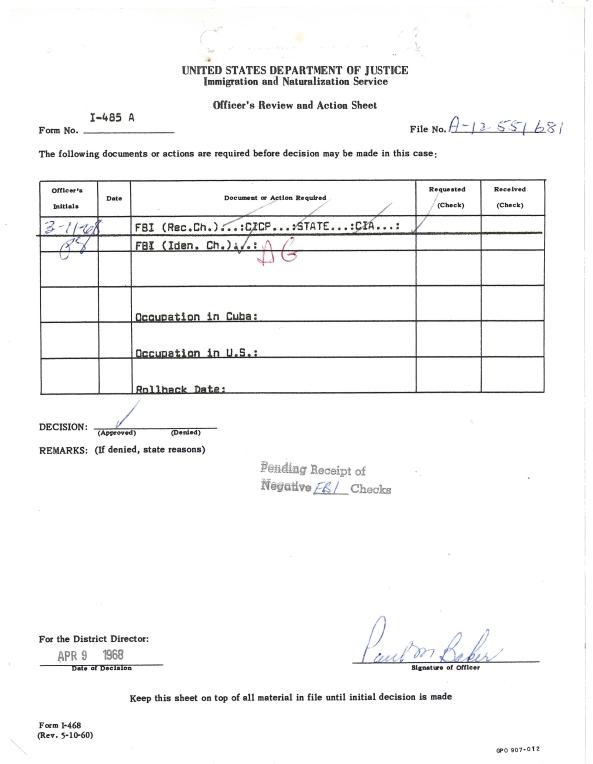 UNITED STATES DEPARTMENT OF JUSTICE
Immigration and Naturalization Service
Officer's Review and Action Sheet
I-485 A
Form No.
File No. A-12 551 681
The following documents or actions are required before decision may be made in this case:
Officer's Initials
Date
Document or Action Required
Requested (Check)
Received (Check)
3-11-68
FBI (Rec.Ch.)...:CICP...:STATE...:CIA...:
FBI (Iden. Ch.)...:
Occupation in Cuba:
Occupation in U.S.:
Rollback Date:
DECISION:
(Approved) (Denied)
REMARKS: (If denied, state reasons)
Pending Receipt of
Negative FBI Checks
For the District Director:
APR 9 1968
Date of Decision
Paul M Baker
Signature of Officer
Keep this sheet on top of all material in file until initial decision is made
Form I-468
(Rev. 5-10-60)
GPO 907-012